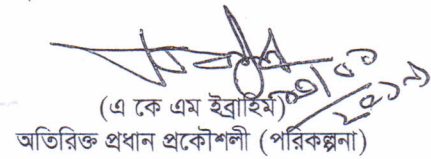 (এ কে এম ইব্রাহিম)
অতিরিক্ত প্রধান প্রকৌশলী (পরিকল্পনা)